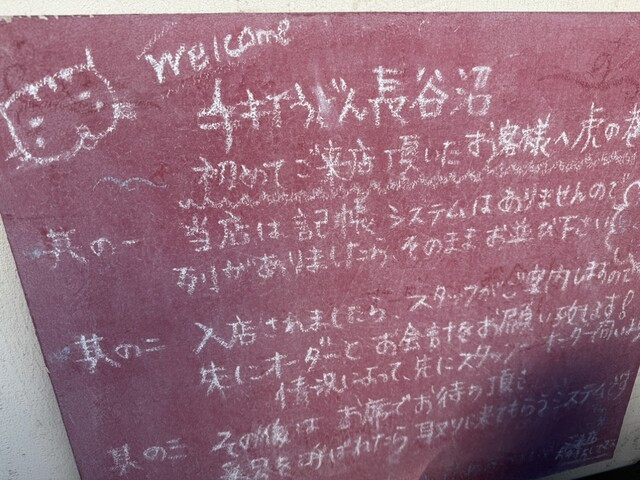 Welcome
手打うどん長谷沼
初めてご来店頂いたお客様へ虎の巻
其の一 当店は記帳システムはありませんので
ありましたら、そのままお並び下さい
其の二 入店されましたら、スタッフがご案内しますので
先にオーダーとお会計をお願い致します!
情況によって、先にスタッフ オーダー伺い
其の三 その後は お席でお待ち頂き
呼ばれたら 取りに来てもらうシステム